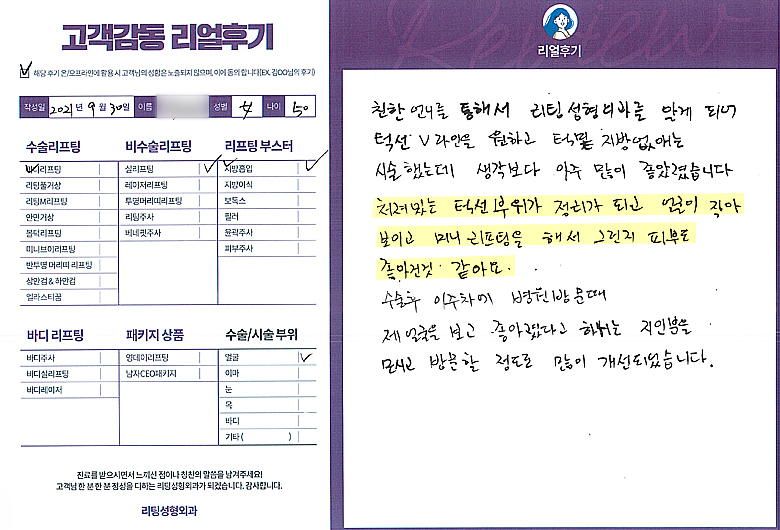 고객감동 리얼후기
해당 후기 온/오프라인에 활용 시 고객님의 성함은 노출되지 않으며, 이에 동의 합니다(EX. 김OO님의 후기)
작성일 2021년 9월 30일 이름 성별 女 나이 50
수술리프팅
리프팅
리팅풀기상
리팅M리프팅
안면기상
볼턱리프팅
미니브이리프팅
반투명 머리띠 리프팅
상안검 & 하안검
엘라스티꿈
비수술리프팅
실리프팅
레이저리프팅
투명머리띠리프팅
리팅주사
버네핏주사
리프팅 부스터
지방흡입
지방이식
보톡스
필러
윤곽주사
피부주사
바디 리프팅
바디주사
바디실리프팅
바디레이저
패키지 상품
영데이리프팅
남자CEO패키지
수술/시술 부위
얼굴
이마
눈
목
바디
기타 ( )
진료를 받으시면서 느끼신 점이나 칭찬의 말씀을 남겨주세요!
고객님 한 분 한 분 정성을 다하는 리팅성형외과가 되겠습니다. 감사합니다.
리팅성형외과
리얼후기
친한 언니를 통해서 리팅성형외과를 알게 되어
턱선 V라인을 원하고 턱밑 지방없애는
시술했는데 생각보다 아주 많이 좋았졌습니다
처져있는 턱선부위가 정리가 되고 얼굴이 작아
보이고 미니리프팅을 해서 그런지 피부도
좋아진것 같아요.
수술후 이주차에 병원방문때
제 얼굴을 보고 좋아졌다고 하시는 지인분을
모시고 방문할 정도로 많이 개선되었습니다.